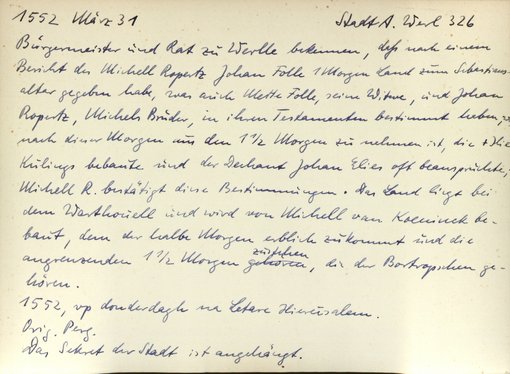 1552 März 31 Stadt A. Werl 326
Bürgermeister und Rat zu Werlle bekennen, daß nach einem
Bericht des Michell Ropertz Johan Folle 1 Morgen Land zum Sebastians-
altar gegeben habe, was auch Mette Folle, seine Witwe, und Johan
Ropertz, Michels Bruder, in ihren Testamenten bestimmt haben,
nach dieser Morgen aus den 1 1/2 Morgen zu nehmen ist, die
Külings bebaute und der Dechant Johan Elies oft beanspruchte,
Michell R. bestätigt diese Bestimmungen. Das Land liegt bei
dem und wird von Michell van Koeninck be-
baut, dem der halbe Morgen erblich zukommt und die
angrenzenden 1 1/2 Morgen gehören zustehen, die der Bortropschen ge-
hören.
1552, vp donderdagh na Letare Hierusalem.
Orig. Perg.
Das Sekret der Stadt ist angehängt.